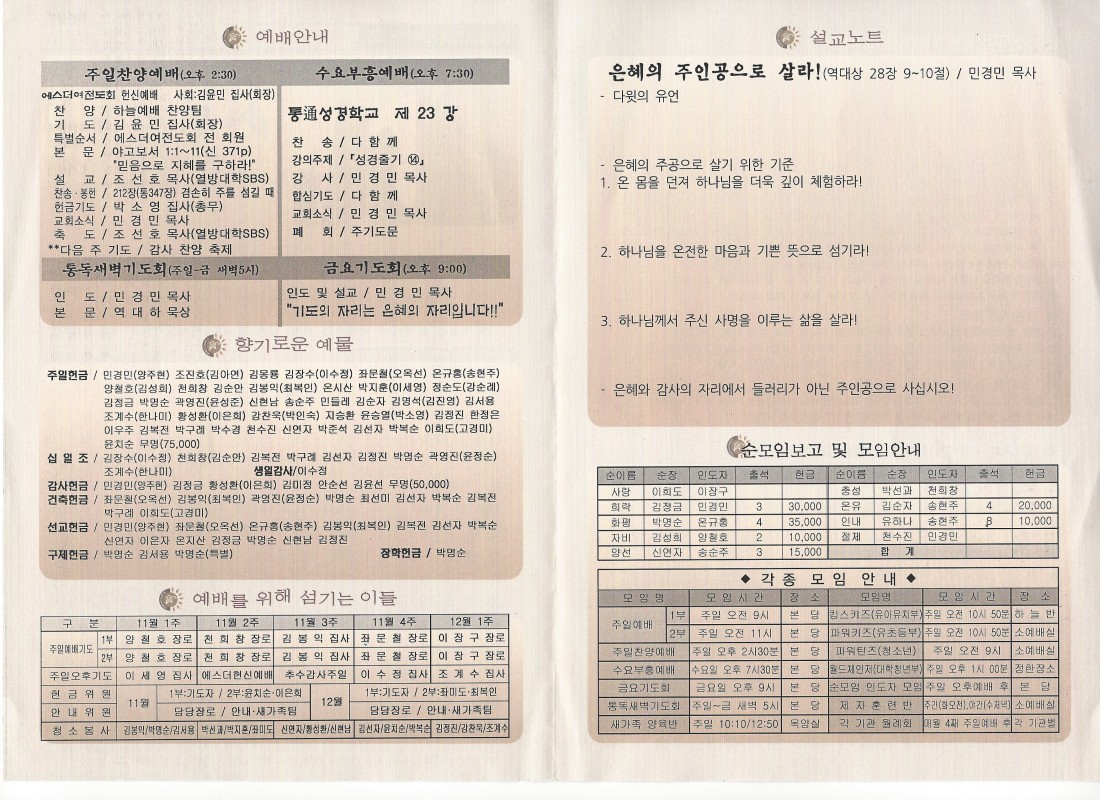 예배안내
주일찬양예배(오후 2:30)
에스더여전도회 헌신예배 사회:김윤민 집사(회장)
찬 양 / 하늘예배 찬양팀
기 도 / 김 윤 민 집사(회장)
특별순서 / 에스더여전도회 전 회원
본 문 / 야고보서 1:1~11(신 371p)
"믿음으로 지혜를 구하라!"
설 교 / 조 선 호 목사(열방대학SBS)
찬송·봉헌 / 212장(통347장) 겸손히 주를 섬길 때
헌금기도 / 박 소 영 집사(총무)
교회소식 / 민 경 민 목사
축 도 / 조 선 호 목사(열방대학SBS)
**다음 주 기도 / 감사 찬양 축제
수요부흥예배(오후 7:30)
통通성경학교 제 23 강
찬 송 / 다 함 께
강의주제 / 「성경줄기 ⑭」
강 사 / 민 경 민 목사
합심기도 / 다 함 께
교회소식 / 민 경 민 목사
폐 회 / 주기도문
통독새벽기도회(주일-금 새벽5시)
인 도 / 민 경 민 목사
본 문 / 역 대 하 묵상
금요기도회(오후 9:00)
인도 및 설교 / 민 경 민 목사
"기도의 자리는 은혜의 자리입니다!!"
향기로운 예물
주일헌금 / 민경민(양주현) 조진호(김아연) 김몽룡 김장수(이수정) 좌문철(오옥선) 온규흥(송현주)
양철호(김성희) 천희창 김순안 김봉익(최복인) 온시산 박지훈(이세영) 정순도(강순례)
김정금 박명순 곽영진(윤성준) 신현남 송순주 민들레 김순자 김명석(김진영) 김서용
조계수(한나미) 황성환(이은희) 강찬욱(박인숙) 지승환 윤승열(박소영) 김정진 한정은
이우주 김복전 박구례 박수경 천수진 신연자 박준석 김선자 박복순 이희도(고경미)
윤치순 무명(75,000)
십 일 조 / 김장수(이수정) 천희창(김순안) 김복전 박구례 김선자 김정진 박명순 곽영진(윤정순)
조계수(한나미) 생일감사/이수정
감사헌금 / 민경민(양주현) 김정금 황성환(이은희) 김미정 안순선 김윤선 무명(50,000)
건축헌금 / 좌문철(오옥선) 김봉익(최복인) 곽영진(윤정순) 박명순 최선미 김선자 박복순 김복진
박구례 이희도(고경미)
선교헌금 / 민경민(양주현) 좌문철(오옥선) 온규흥(송현주) 김봉익(최복인) 김복전 김선자 박복순
신연자 이은자 온지산 김정금 박명순 신현남 김정진
구제헌금 / 박명순 김서용 박명순(특별) 장학헌금 / 박명순
예배를 위해 섬기는 이들
구 분 11월 1주 11월 2주 11월 3주 11월 4주 12월 1주
주일예배기도 1부 양 철 호 장로 천 희 창 장로 김 봉 익 집사 좌 문 철 장로 이 장 구 장로
2부 양 철 호 장로 천 희 창 장로 김 봉 익 집사 좌 문 철 장로 이 장 구 장로
주일오후기도 이 세 영 집사 에스더헌신예배 추수감사주일 이 수 정 집사 조 계 수 집사
헌 금 위 원 11월 1부:기도자 / 2부:윤치순·이은희 12월 1부:기도자 / 2부:좌미도·최복인
안 내 위 원 담당장로 / 안내·새가족팀 담당장로 / 안내·새가족팀
청 소 봉 사 김봉익/박명순/김서용 박선과/박지훈/좌미도 신연자/황성환/신현남 김선자/윤치순/박복순 김정진/강찬욱/조계수
설교노트
은혜의 주인공으로 살라!(역대상 28장 9~10절) / 민경민 목사
- 다윗의 유언
- 은혜의 주공으로 살기 위한 기준
1. 온 몸을 던져 하나님을 더욱 깊이 체험하라!
2. 하나님을 온전한 마음과 기쁜 뜻으로 섬기라!
3. 하나님께서 주신 사명을 이루는 삶을 살라!
- 은혜와 감사의 자리에서 들러리가 아닌 주인공으로 사십시오!
순모임보고 및 모임안내
순이름 순장 인도자 출석 헌금 순이름 순장 인도자 출석 헌금
사랑 이희도 이장구 충성 박선과 천희창
희락 김정금 민경민 3 30,000 온유 김순자 송현주 4 20,000
화평 박명순 온규흥 4 35,000 인내 유하나 송현주 3 10,000
자비 김성희 양철호 2 10,000 절제 천수진 민경민
양선 신연자 송순주 3 15,000 합 계
◆ 각 종 모 임 안 내 ◆
모 임 명 모 임 시 간 장 소 모임명 모 임 시 간 장 소
주일예배 1부 주일 오전 9시 본 당 킹스키즈(유아유치부) 주일 오전 10시 50분 하 늘 반
2부 주일 오전 11시 본 당 파워키즈(유초등부) 주일 오전 10시 50분 소예배실
주일찬양예배 주일 오후 2시30분 본 당 파워틴즈(청소년) 주일 오전 9시 소예배실
수요부흥예배 수요일 오후 7시30분 본 당 월드체인저(대학청년부) 주일 오후 1시 00분 정한장소
금요기도회 금요일 오후 9시 본 당 순모임 인도자 모임 주일 오후예배 후 본 당
통독새벽기도회 주일~금 새벽 5시 본 당 제 자 훈 련 반 주간(화오전),야간(수저녁) 소예배실
새가족 양육반 주일 10:10/12:50 목양실 각 기관 월례회 매월 4째 주일예배 후 각 기관별